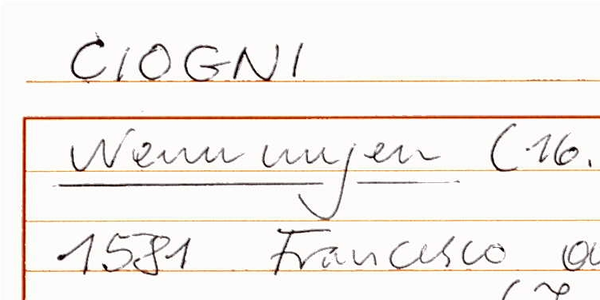 CIOGNI
Nennungen (16.
1581 Francesco